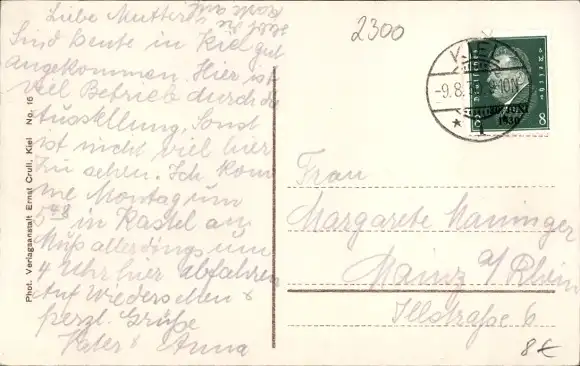 Liebe Mutter!
Sind heute in Kiel gut
angekommen. Hier ist
viel Betrieb durch die
Ausstellung. Sonst
ist nicht viel hier
zu sehen. Ich kom
me Montag um
5 48 in Kastel an
Muß allerdings um
4 Uhr hier abfahren
Auf Wiedersehen &
herzl. Grüße
Vater & Anna
2300
KIEL
-9.8.
8
30. JUNI
1930
Frau
Margarete Maninger
Mainz a/Rhein
Illstraße 6
8€
Phot. Verlagsanstalt Ernst Crull, Kiel No. 16